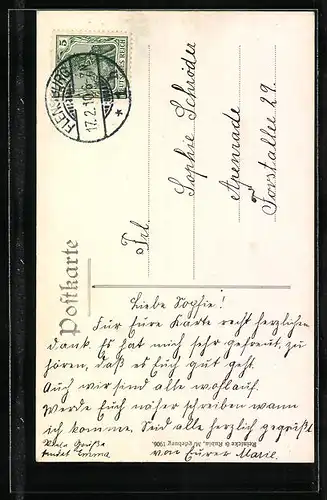 5
DEUTSCHES REICH
FLENSBURG
17.2.10
Postkarte
Frl.
Sophie Schröder
Apenrade
Forstallee 29.
Liebe Sophie!
Für Eure Karte recht herzlichen
dank. Es hat mich sehr gefreut, zu
hören, daß es Euch gut geht.
Auch wir sind alle wohlauf.
Werde Euch näher schreiben wann
ich komme. Seid alle herzlich gegrüßt
von Eurer Marie.
Viele Grüße
sendet Emma
Reinicke & Rubin, Magdeburg 1906.